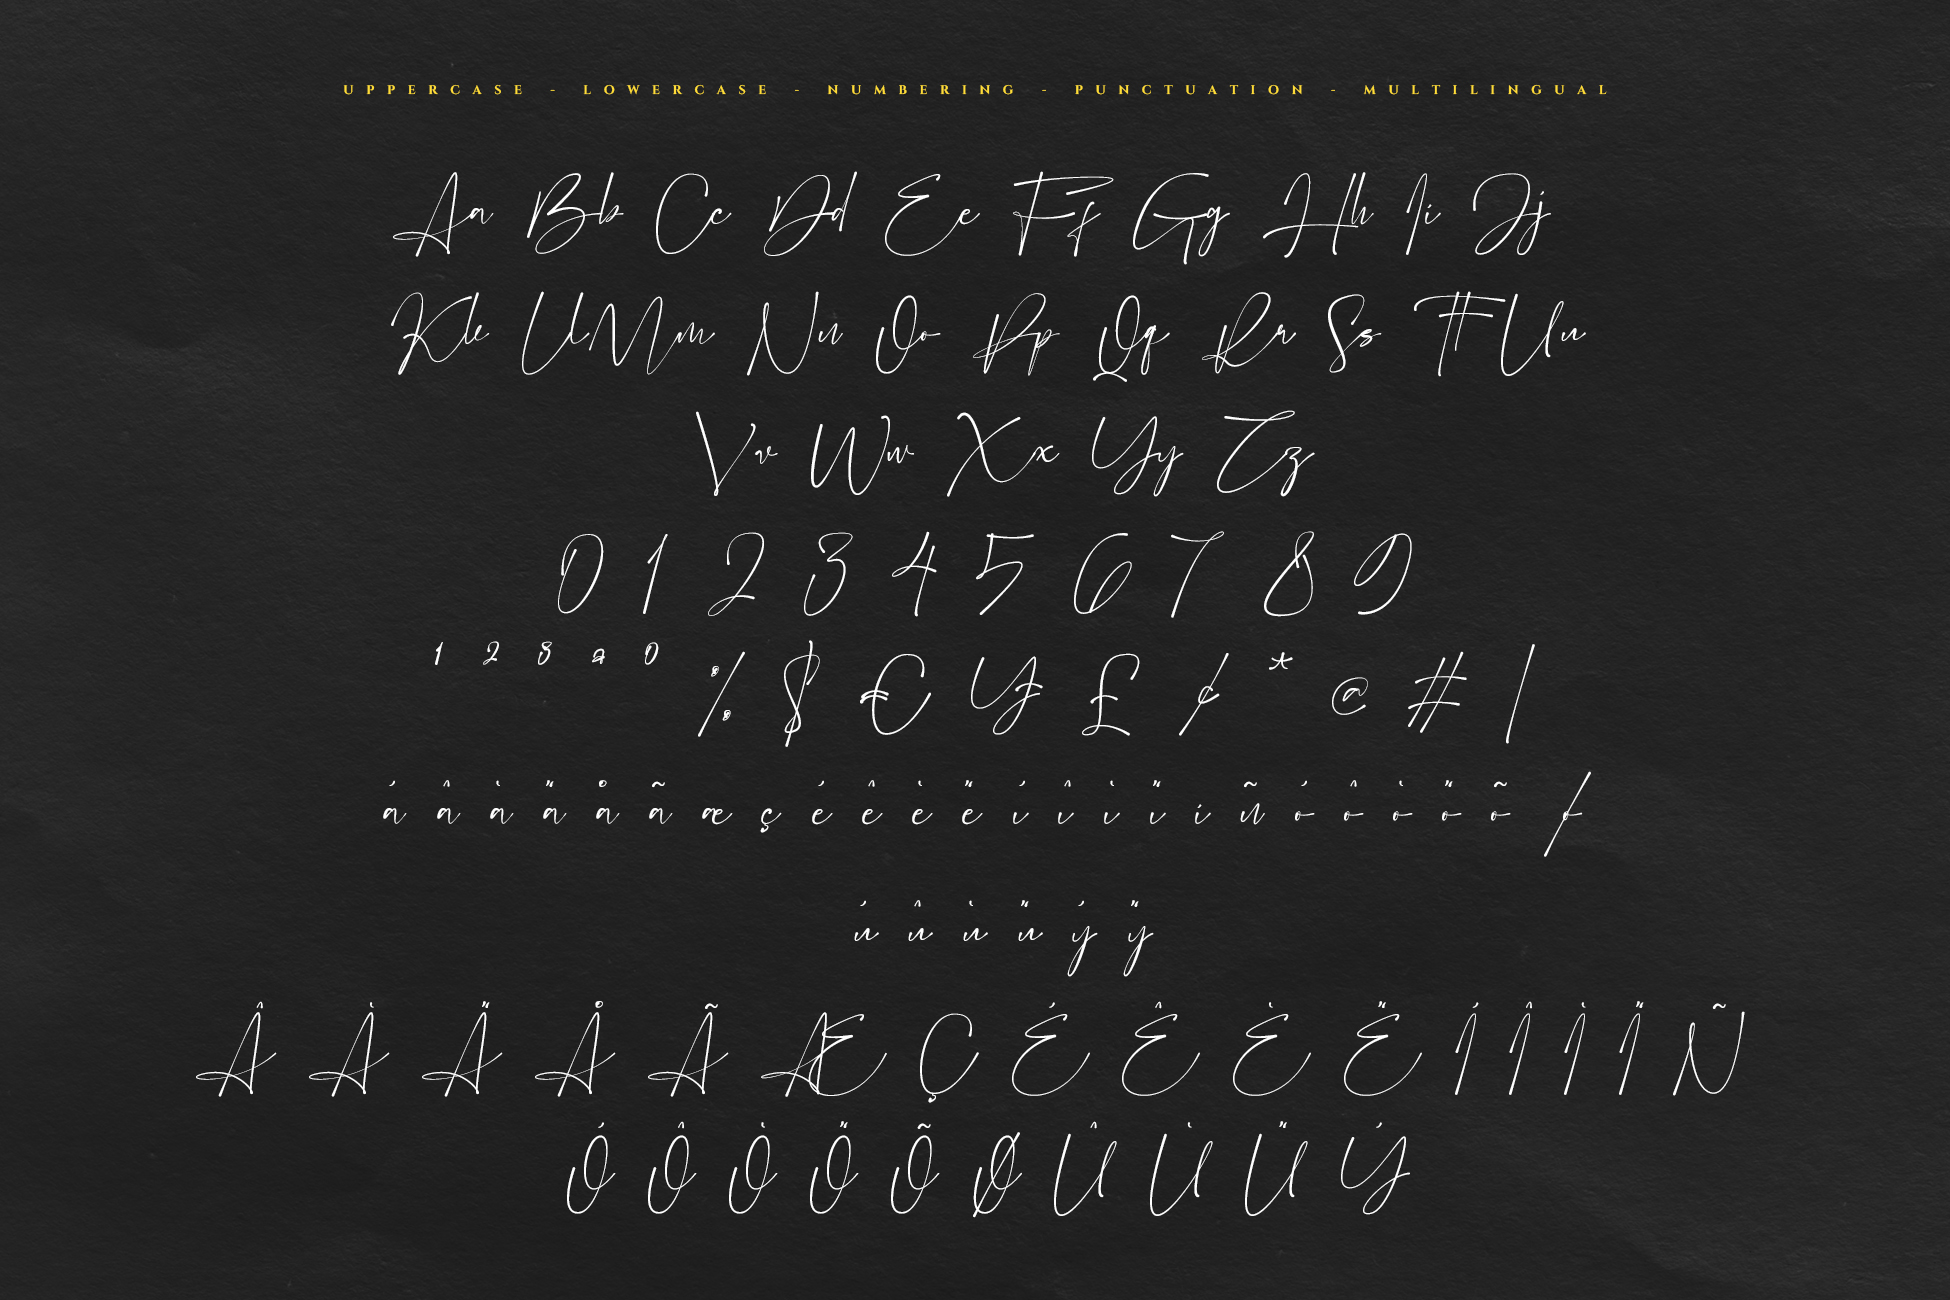 UPPERCASE - LOWERCASE - NUMBERING - PUNCTUATION - MULTILINGUAL
Aa Bb Cc Dd Ee Ff Gg Hh Ii Jj
Kk Ll Mm Nn Oo Pp Qq Rr Ss Tt Uu
Vv Ww Xx Yy Zz
0 1 2 3 4 5 6 7 8 9
¹ ² ³ ª º % $ € ¥ £ ¢ * @ # |
á â à ä å ã æ ç é ê è ë í î ì ï i ñ ó ô ò ö õ ø
ú û ù ü ý ÿ
Â À Ä Å Ã Æ Ç É Ê È Ë Í Î Ì Ï Ñ
Ó Ô Ò Ö Õ Ø Û Ù Ü Ý